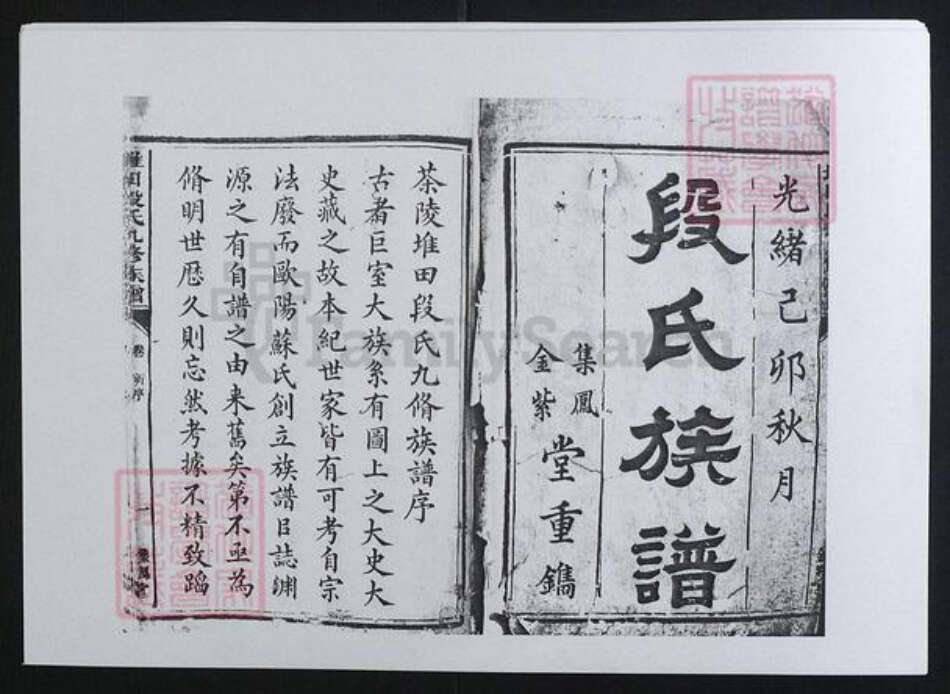 光緒己卯秋月
段氏族譜
集鳳
金紫
堂重鐫
茶陵堆田段氏九脩族譜序
古者巨室大族系有圖上之大史大
史藏之故本紀世家皆有可考自宗
法廢而歐陽蘇氏創立族譜㠯誌淵
源之有自譜之由来舊矣第不亟為
脩明世歷久則忘然考據不精致蹈
堆田段氏九修族譜
卷
新序
一
集鳳堂
FamilySearch